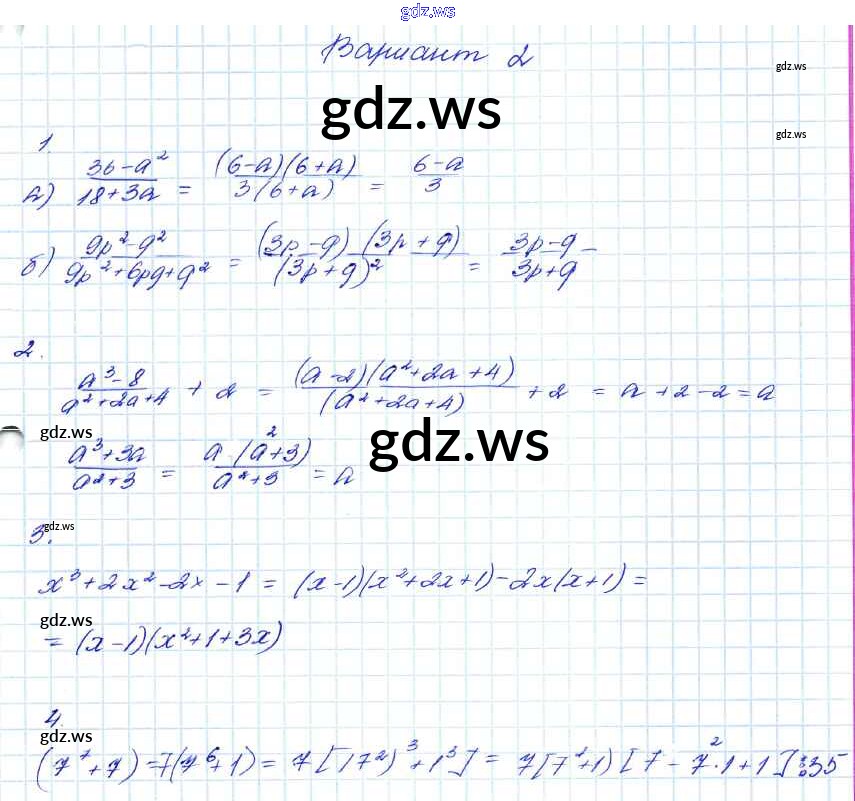 gdz.ws
Вариант 2
gdz.ws
gdz.ws
1.
gdz.ws
а) (36-a²)/(18+3a) = ((6-a)(6+a))/(3(6+a)) = (6-a)/3
б) (9p²-q²)/(9p²+6pq+q²) = ((3p-q)(3p+q))/((3p+q)²) = (3p-q)/(3p+q) -
2.
(a³-8)/(a²+2a+4) + 2 = ((a-2)(a²+2a+4))/((a²+2a+4)) + 2 = a+2-2=a
gdz.ws
gdz.ws
(a³+3a)/(a²+3) = (a(a²+3))/(a²+3) = a
gdz.ws
3.
x³+2x²-2x-1 = (x-1)(x²+2x+1)-2x(x+1)=
gdz.ws
= (x-1)(x²+1+3x)
4.
gdz.ws
(7⁷+7)=7(7⁶+1)= 7[(7²)³+1³]= 7[7²+1)[7-7²·1+1]⋮35